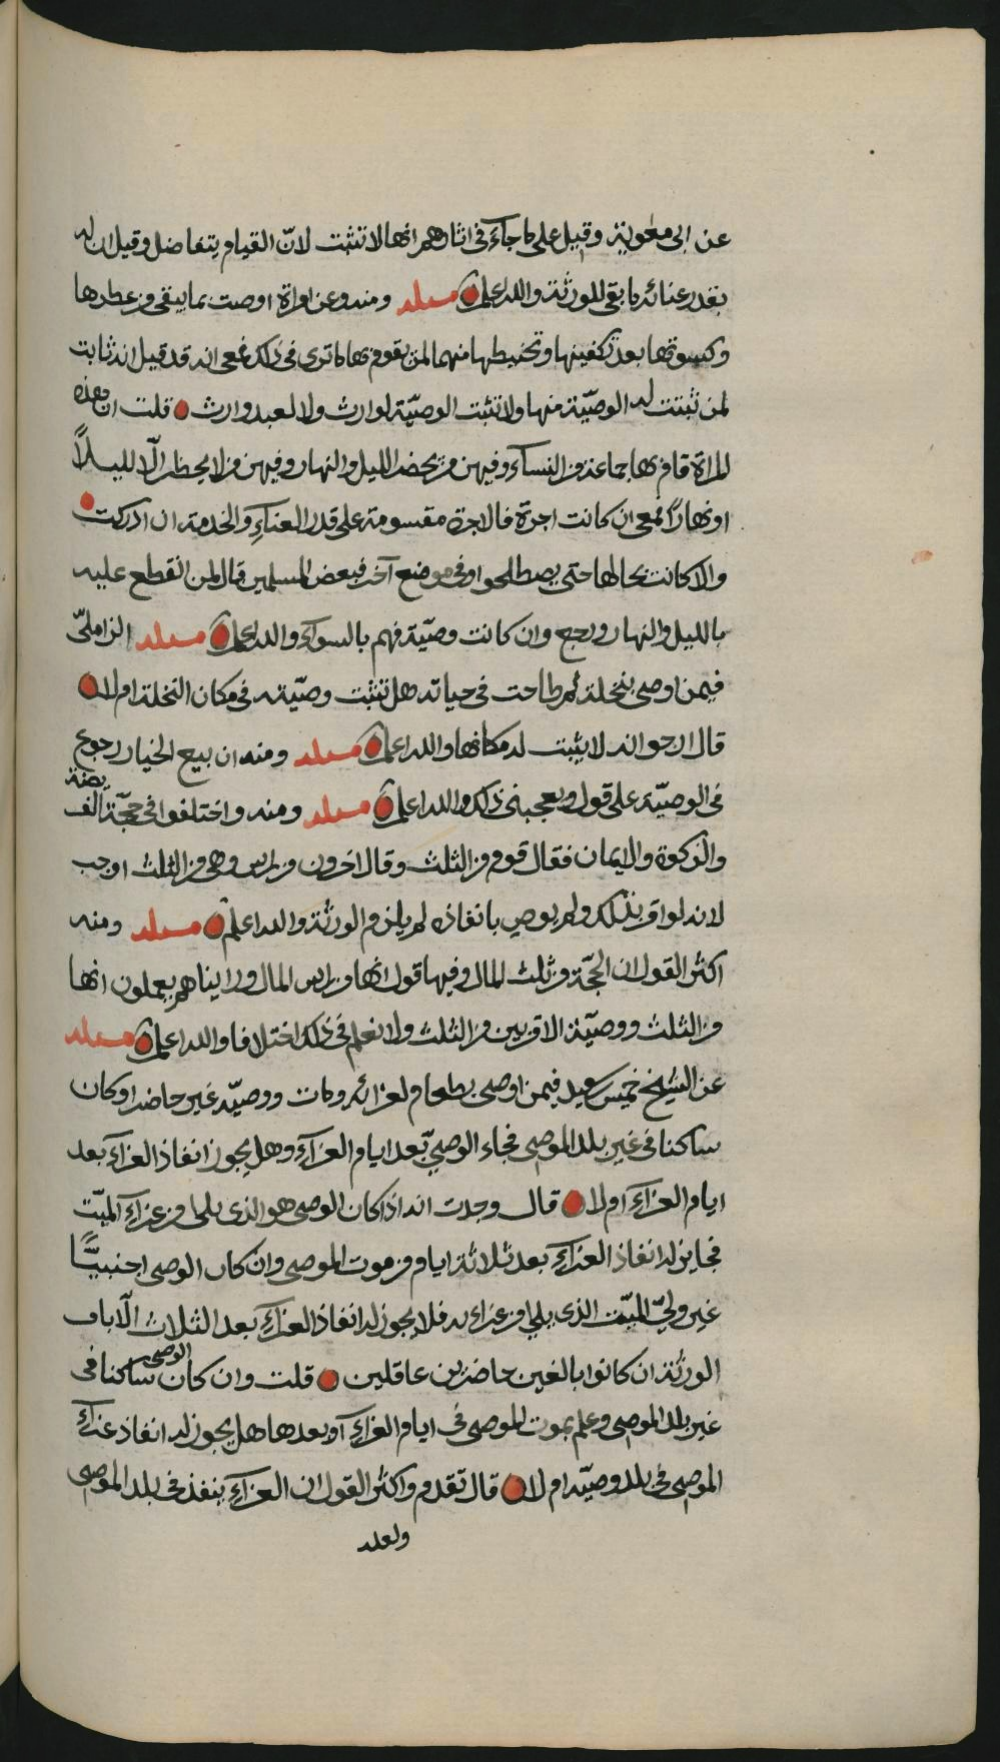 عن ابى معوية وقيل على ما جاء فى اثارهم انها لا تثبت لانّ القيام يتفاضل وقيل ان له
بقدر عنائه ما بقى للورثة والله اعلم مسئلة ومنه وعن امراة اوصت بما يبقى من عطرها
وكسوتها بعد تكفينها وتحنيطها منهما لمن يقوم بها ما ترى فى ذلك فمعى انه قد قيل انه ثابت
لمن ثبتت له الوصيّة منها ولا تثبت الوصيّة لوارث ولا لعبد وارث قلت ان هذه
المراة قام بها جماعة من النساء وفيهن من يحضر الليل والنهار وفيهن من لا يحضر الّا ليلاً
او نهاراً فمعى ان كانت اجرة فالاجرة مقسومة على قدر العناء والخدمة ان ادركت
والا كانت بحالها حتى يصطلحوا وفى موضع آخر فبعض المسلمين قال لمن انقطع عليه
بالليل والنهار ورجع وان كانت وصيّة فهم بالسواء والله اعلم مسئلة الزاملىّ
فيمن اوصى بنخلة ثم طاحت فى حياته هل تثبت وصيّته فى مكان النخلة ام لا
قال ارجو انه لا يثبت له مكانها والله اعلم مسئلة ومنه ان بيع الخيار رجوع
فى الوصيّة على قول ويعجبنى ذلك والله اعلم مسئلة ومنه واختلفوا فى حجّة الفريضة
والزكوة والايمان فقال قوم من الثلث وقال اخرون من راس وهى من الثلث اوجب
لانه لو اقر بذلك ولم يوص بانفاذه لم يلزم الورثة والله اعلم مسئلة ومنه
اكثر القول ان الحجّة من ثلث المال وفيها قول انها من راس المال وراينا هم يعملون انها
من الثلث ووصيّة الاقربين من الثلث ولا نعلم فى ذلك اختلافا والله اعلم مسئلة
عن الشيخ خميس سعيد فيمن اوصى بطعام لعزائه ومات ووصيّه غير حاضر او كان
ساكنا فى غير بلد الموصى فجاء الوصىّ بعد ايام العزاء وهل يجوز انفاذ العزاء بعد
ايام العزاء ام لا قال وجدت انه اذا كان الوصى هو الذى يلى من عزاء الميّت
فجايز له انفاذ العزاء بعد ثلاثة ايام من موت الموصى وان كان الوصى اجنبيّاً
غير ولىّ الميّت الذى يلى من عزاءه فلا يجوز له انفاذ العزاء بعد الثلاث الّا باب
الورثة ان كانوا بالغين حاضرين عاقلين قلت وان كان الوصى ساكنا فى
غير بلد الموصى وعلم بموت الموصى فى ايام العزاء او بعدها هل يجوز له انفاذ عزاء
الموصى فى بلد وصيّه ام لا قال تقدم واكثر القول ان العزاء ينفذ فى بلد الموصى
ولعله